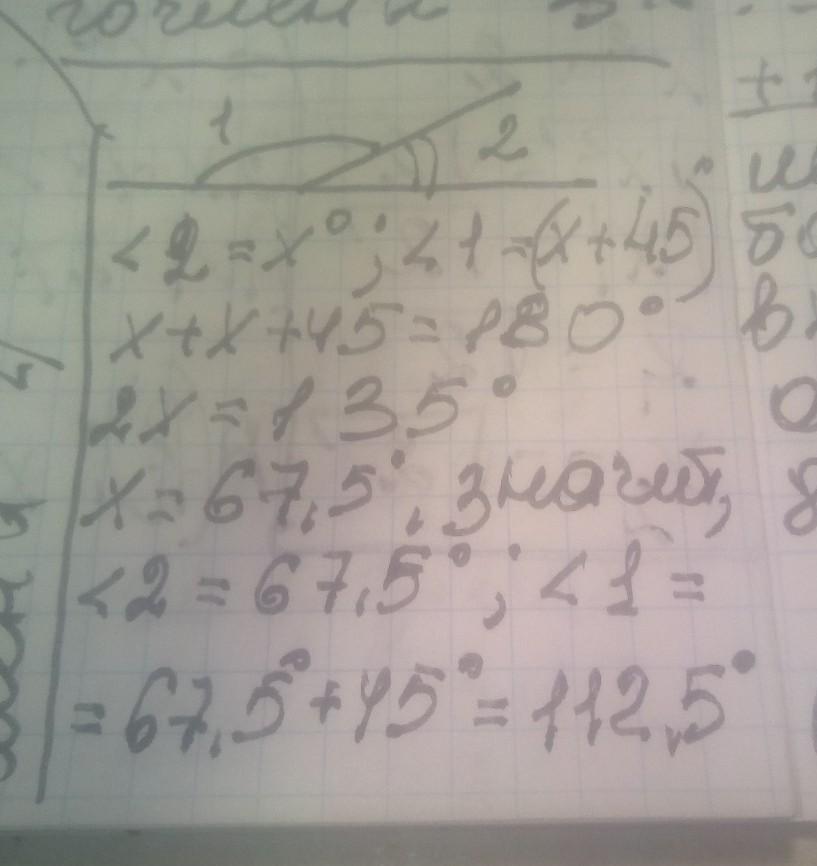 1
2
<2 = x°; <1 = (x+45)°
x+x+45 = 180°
2x = 135°
x = 67,5°, значит,
<2 = 67,5°; <1 =
= 67,5° + 45° = 112,5°